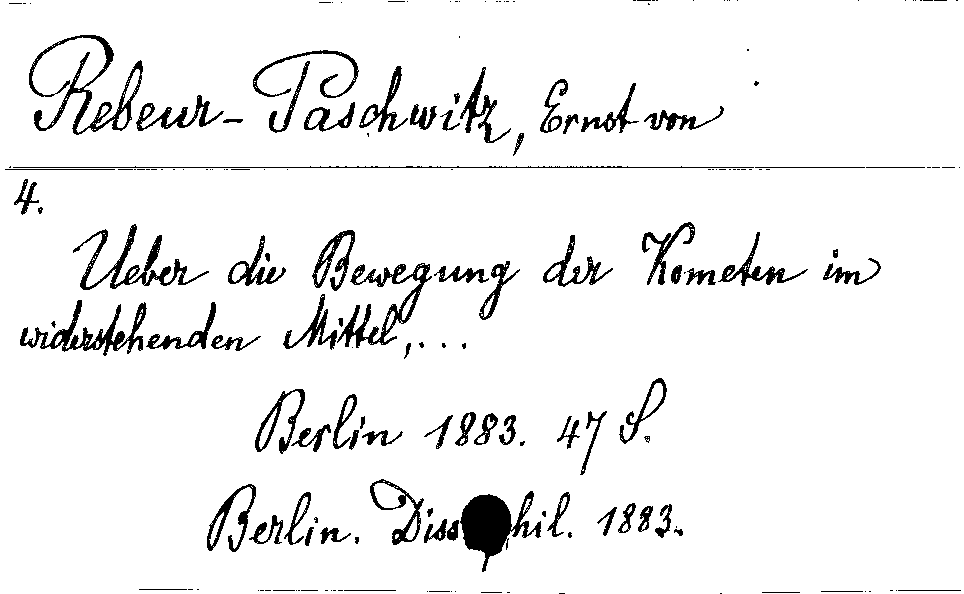 Rebeur-Paschwitz, Ernst von
4.
Ueber die Bewegung der Kometen im
widerstehenden Mittel,...
Berlin 1883. 47 S.
Berlin. Diss phil. 1883.